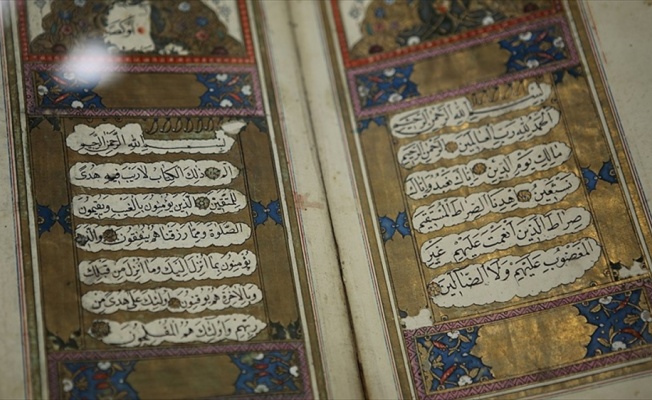 بسم الله الرحمن الرحيم
الحمد لله رب العالمين الرحمن الرحيم
مالك يوم الدين اياك نعبد واياك
نستعين اهدنا الصراط المستقيم
صراط الذين انعمت عليهم غير
المغضوب عليهم ولا الضالين
بسم الله الرحمن الرحيم
الم ذلك الكتاب لا ريب فيه هدى
للمتقين الذين يؤمنون بالغيب ويقيمون
الصلوة ومما رزقناهم ينفقون والذين
يؤمنون بما انزل اليك وما انزل من قبلك
وبالاخرة هم يوقنون اولئك على هدى من
ربهم واولئك هم المفلحون